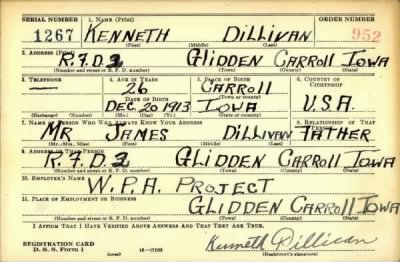 SERIAL NUMBER 1. NAME (Print) ORDER NUMBER
1267 KENNETH DILLIVAN 952
(First) (Middle) (Last)
2. ADDRESS (Print)
R.F.D 2 GLIDDEN CARROLL IOWA
(Number and street or R. F. D. number) (Town) (County) (State)
3. TELEPHONE 4. AGE IN YEARS 5. PLACE OF BIRTH 6. COUNTRY OF CITIZENSHIP
— 26 CARROLL
DATE OF BIRTH (Town or county)
DEC. 20, 1913 IOWA U.S.A.
(Exchange) (Number) (Mo.) (Day) (Yr.) (State or country)
7. NAME OF PERSON WHO WILL ALWAYS KNOW YOUR ADDRESS 8. RELATIONSHIP OF THAT PERSON
MR JAMES DILLIVAN FATHER
(Mr., Mrs., Miss) (First) (Middle) (Last)
9. ADDRESS OF THAT PERSON
R.F.D. 2 GLIDDEN CARROLL IOWA
(Number and street or R. F. D. number) (Town) (County) (State)
10. EMPLOYER'S NAME
W.P.A. PROJECT
11. PLACE OF EMPLOYMENT OR BUSINESS
GLIDDEN CARROLL IOWA
(Number and street or R. F. D. number) (Town) (County) (State)
I AFFIRM THAT I HAVE VERIFIED ABOVE ANSWERS AND THAT THEY ARE TRUE.
REGISTRATION CARD
D. S. S. Form 1 (over) Kenneth Dillivan
(Registrant's signature)